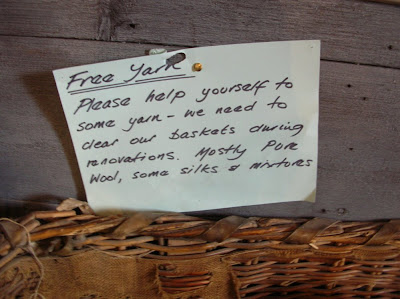 Free Yarn
Please help yourself to
some yarn - we need to
clear our baskets during
renovations. Mostly Pure
Wool, some silks & mixtures